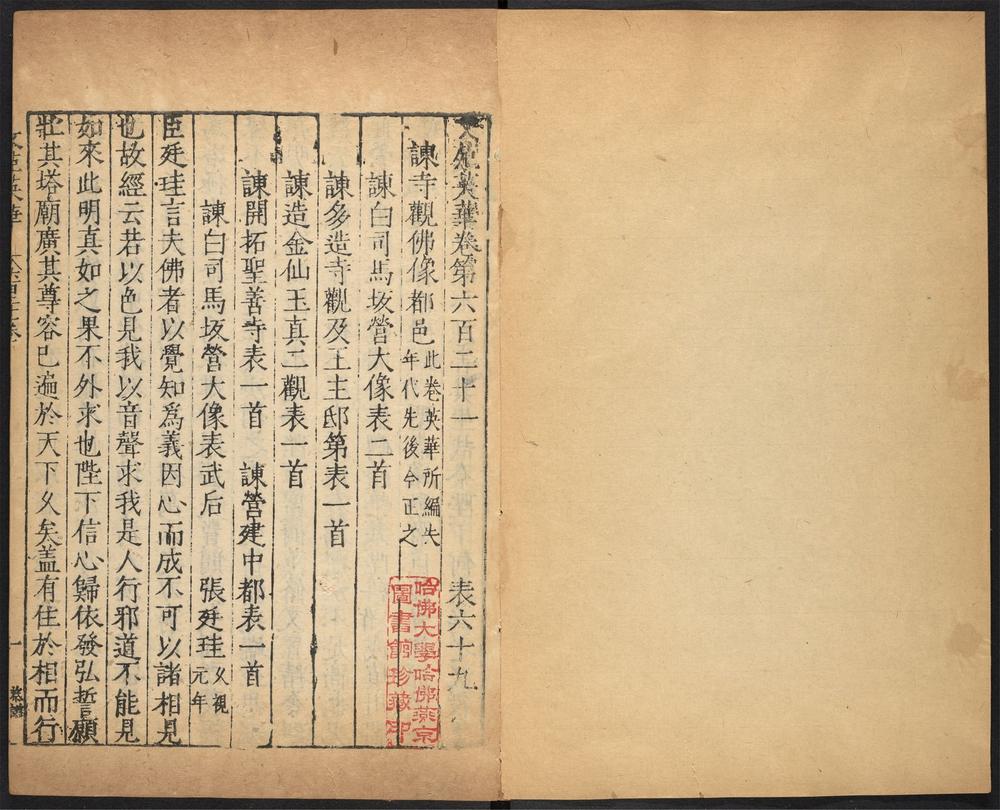 文苑英華卷第六百二十一 表六十九
諫寺觀佛像都邑 此卷英華所編失
年代先後今正之
諫白司馬坂營大像表二首
諫多造寺觀及王主邸第表一首
諫造金仙玉真二觀表一首
諫開拓聖善寺表一首 諫營建中都表一首
諫白司馬坂營大像表武后 張廷珪 久視
元年
臣廷珪言夫佛者以覺知爲義因心而成不可以諸相見
也故經云若以色見我以音聲求我是人行邪道不能見
如來此明真如之果不外求也陛下信心歸依發弘誓願
壯其塔廟廣其尊容已遍於天下久矣盖有住於相而行
一
哈佛大學哈佛燕京
圖書館珍藏印